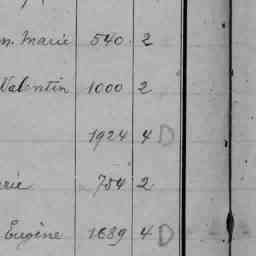 n. Marie 540. 2
Valentin 1000 2
1924 4 D
rie 784 2
Eugène 1689 4 D